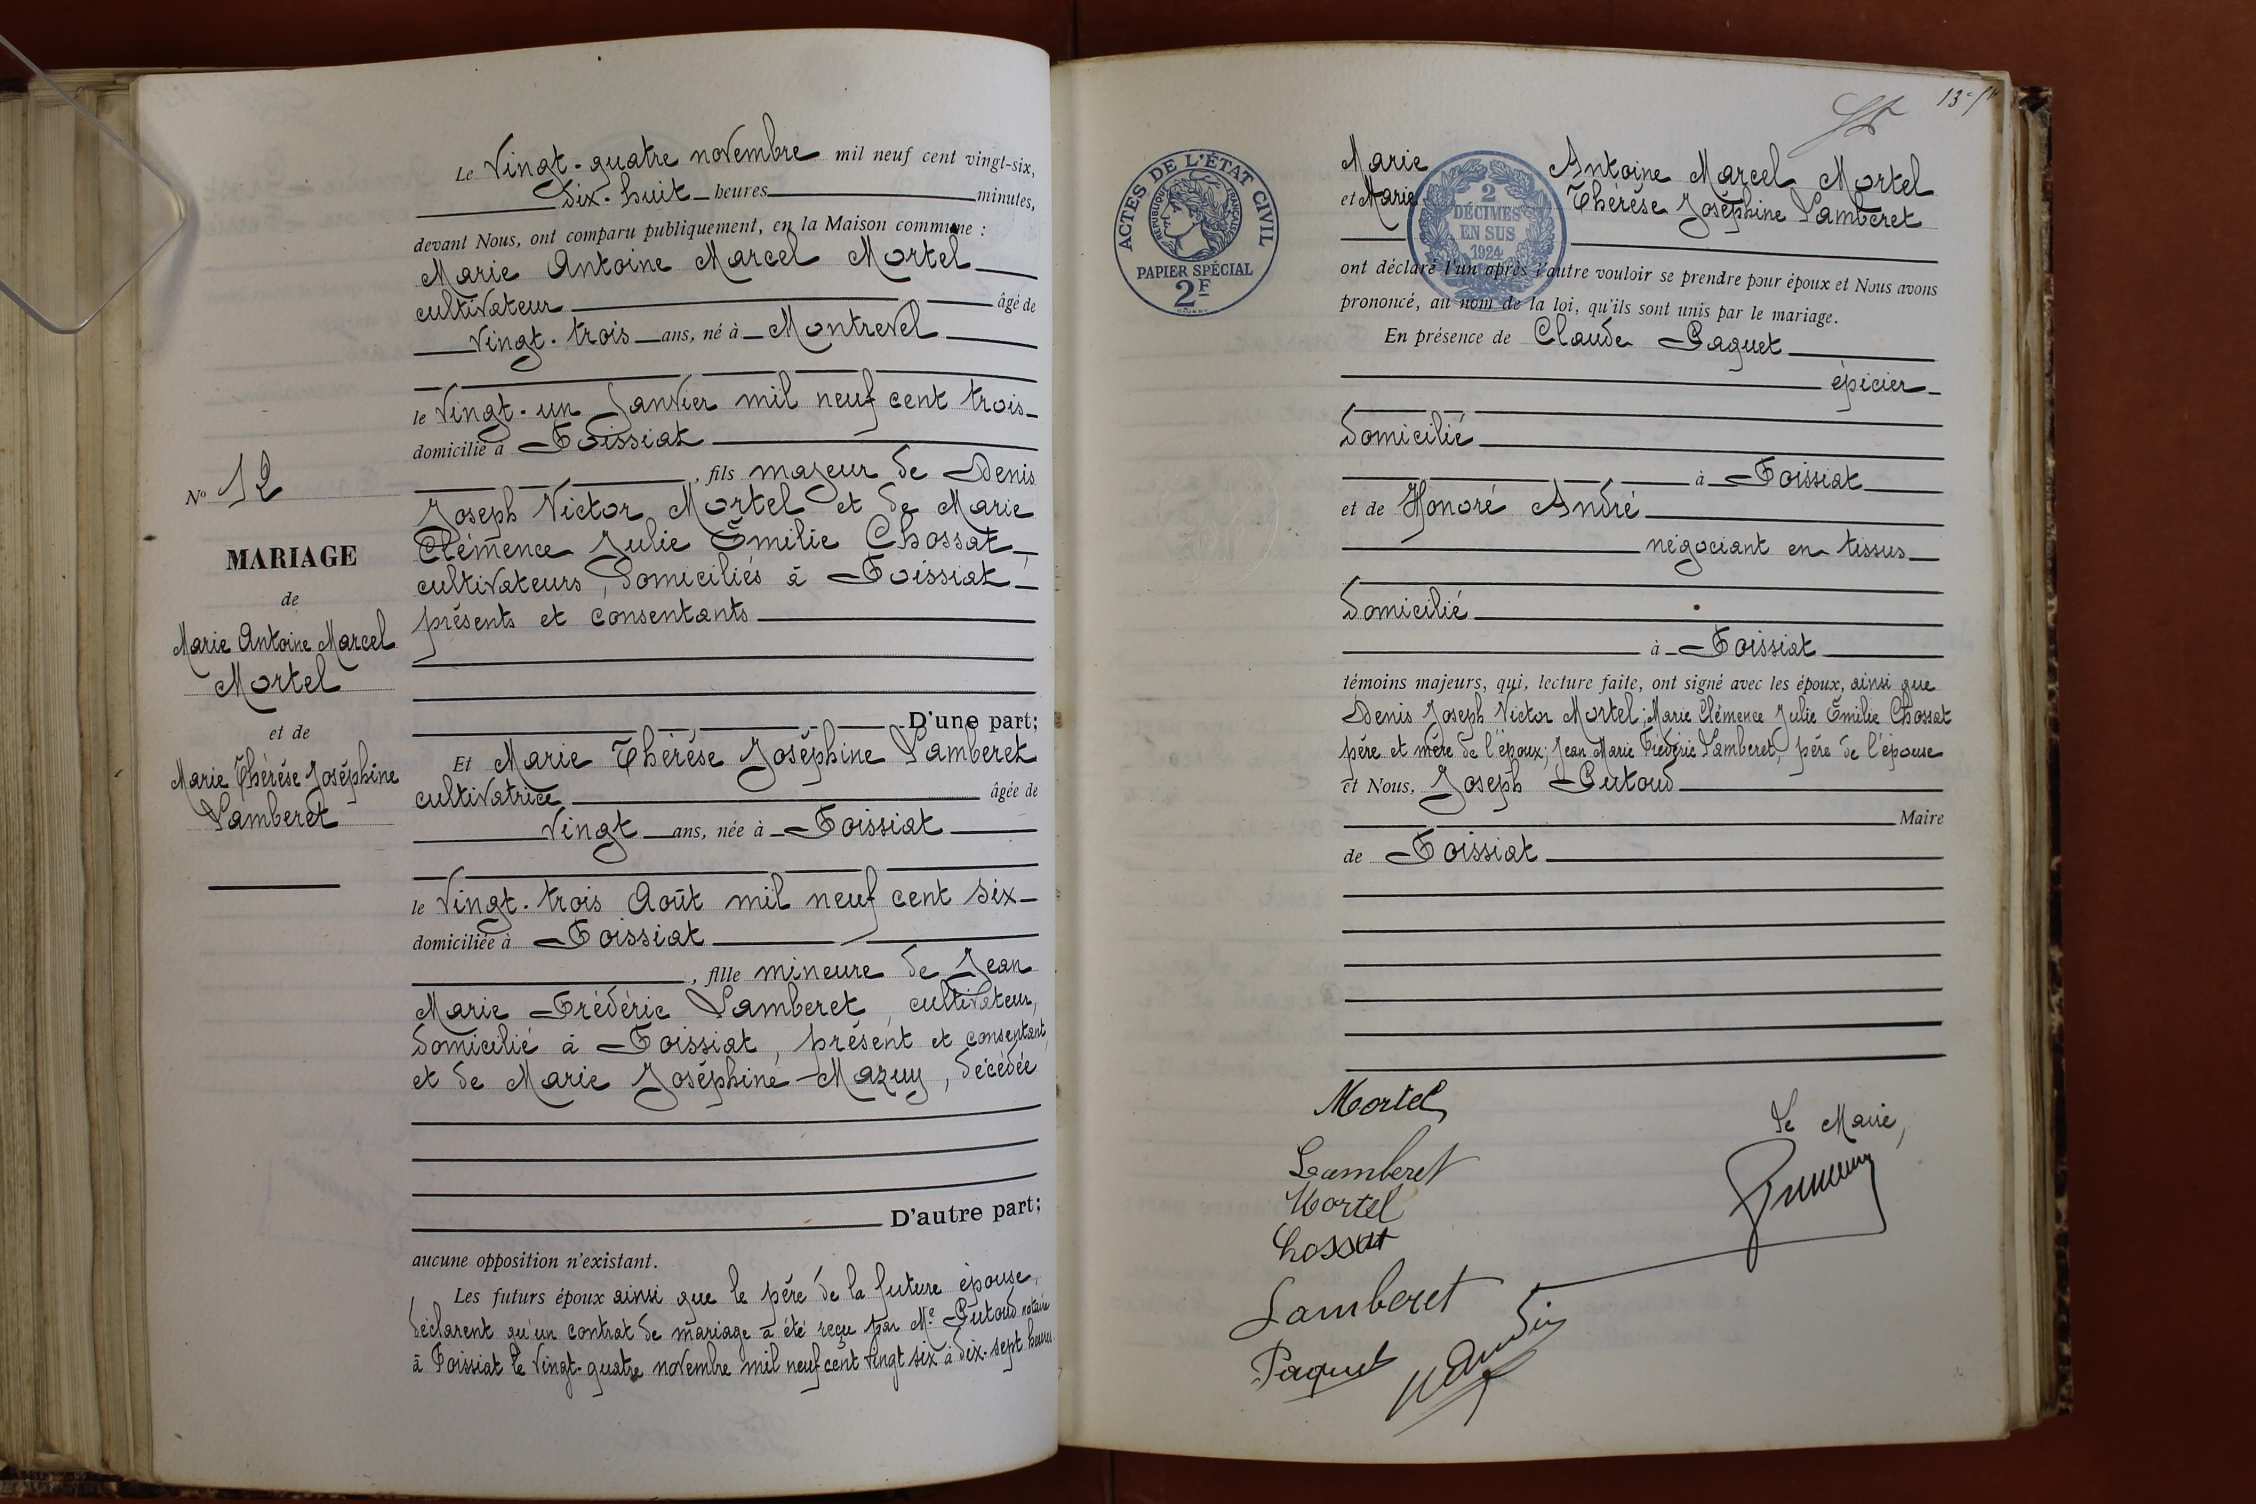 Le Vingt-quatre novembre mil neuf cent vingt-six,
dix-huit heures minutes,
devant Nous, ont comparu publiquement, en la Maison commune :
Marie Antoine Marcel Mortel
cultivateur âgé de
vingt-trois ans, né à Montrevel
le vingt-un Janvier mil neuf cent trois
domicilié à Foissiat
, fils majeur de Denis
Joseph Victor Mortel et de Marie
Clémence Julie Émilie Chossat,
cultivateurs, domiciliés à Foissiat
présents et consentants
D'une part;
Et Marie Thérèse Joséphine Lamberet
cultivatrice âgée de
vingt ans, née à Foissiat
le vingt-trois Août mil neuf cent six
domiciliée à Foissiat
, fille mineure de Jean
Marie Frédéric Lamberet, cultivateur,
domicilié à Foissiat, présent et consentant,
et de Marie Joséphine Mazuy, décédée
D'autre part;
aucune opposition n'existant.
Les futurs époux ainsi que le père de la future épouse
déclarent qu'un contrat de mariage a été reçu par Me Putoud notaire
à Foissiat le vingt-quatre novembre mil neuf cent vingt six à dix-sept heures
No 12
MARIAGE
de
Marie Antoine Marcel
Mortel
et de
Marie Thérèse Joséphine
Lamberet
ACTES DE L'ÉTAT CIVIL
RÉPUBLIQUE FRANÇAISE
PAPIER SPÉCIAL
2F
2
DÉCIMES
EN SUS
1924
Marie Antoine Marcel Mortel
et Marie Thérèse Joséphine Lamberet
ont déclaré l'un après l'autre vouloir se prendre pour époux et Nous avons
prononcé, au nom de la loi, qu'ils sont unis par le mariage.
En présence de Claude Paquet
épicier
domicilié
à Foissiat
et de Honoré André
négociant en tissus
domicilié
à Foissiat
témoins majeurs, qui, lecture faite, ont signé avec les époux, ainsi que
Denis Joseph Victor Mortel; Marie Clémence Julie Émilie Chossat
père et mère de l'époux; Jean Marie Frédéric Lamberet, père de l'épouse
et Nous, Joseph Putoud
Maire
de Foissiat
Mortel
Lamberet
Mortel
Chossat
Lamberet
Paquet
Le Maire,